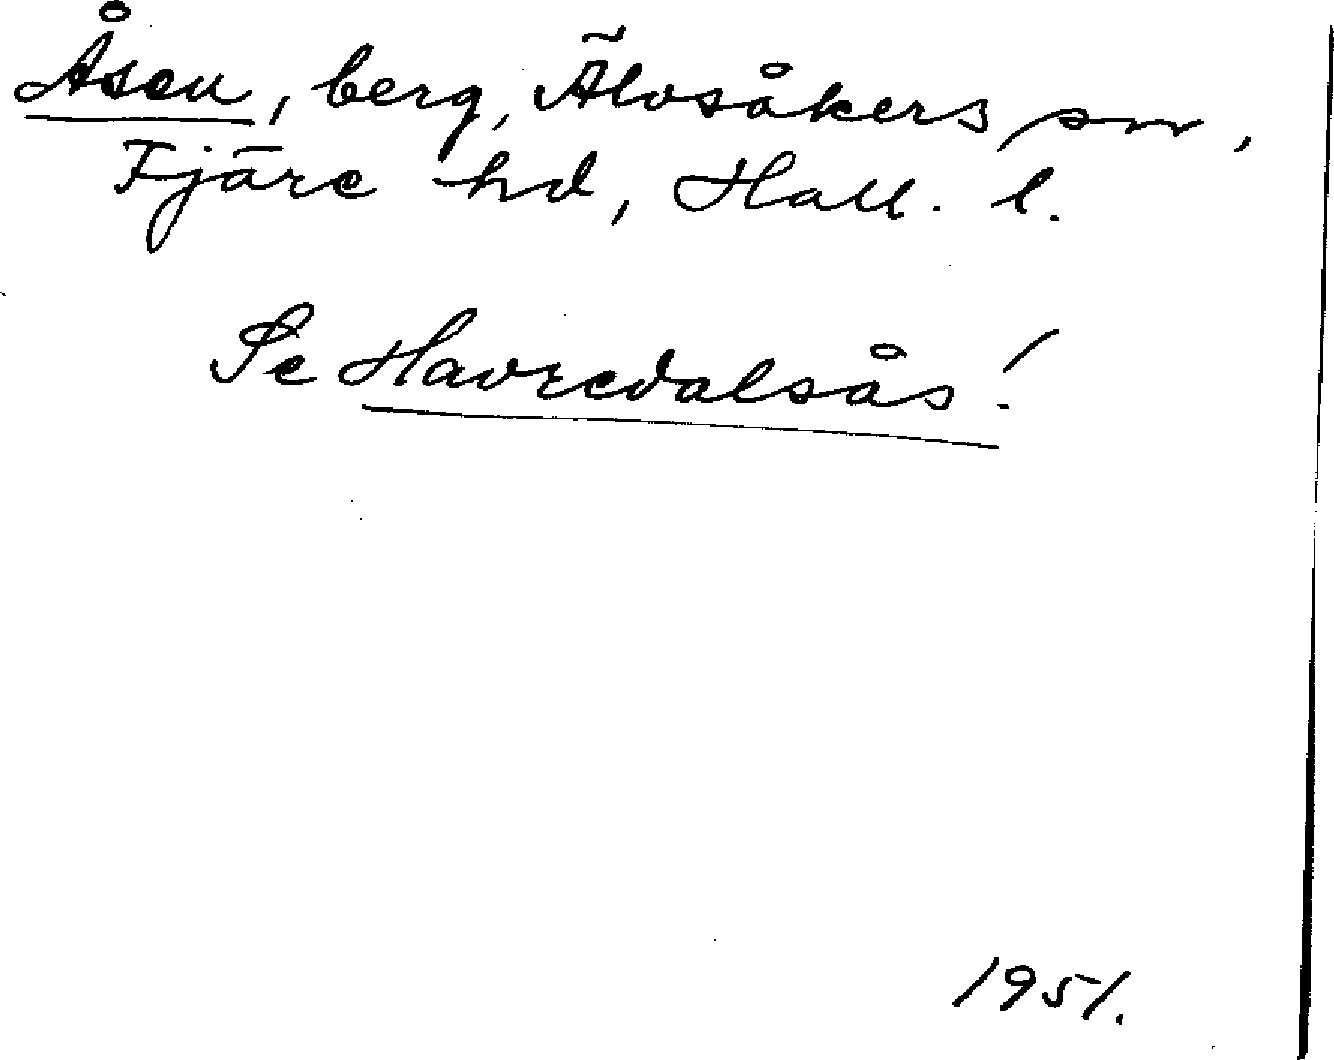 Åsen, berg, Älvsåkers sn,
Fjäre hd, Hall. l.
Se Havredalsås!
1951.